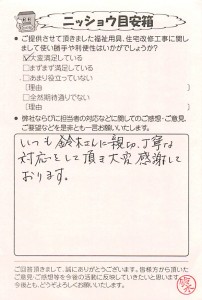 ニッショウ目安箱
・ご提供させて頂きました福祉用具、住宅改修工事に関し
まして使い勝手や利便性はいかがでしょうか?
☑大変満足している
□まずまず満足している
□あまり役立っていない
〔理由 〕
□全然期待通りでない
〔理由 〕
●弊社ならびに担当者の対応などに関してのご感想・ご意見、
ご要望などを是非とも一言お願いいたします。
いつも鈴木さんに親切、丁寧な
対応をして頂き大変感謝して
おります。
ご回答頂きまして、誠にありがとうございます。皆様方から頂いた
ご意見・ご感想等を今後の活動に反映していきたいと思います。
今後とも、どうぞよろしくお願いいたします。